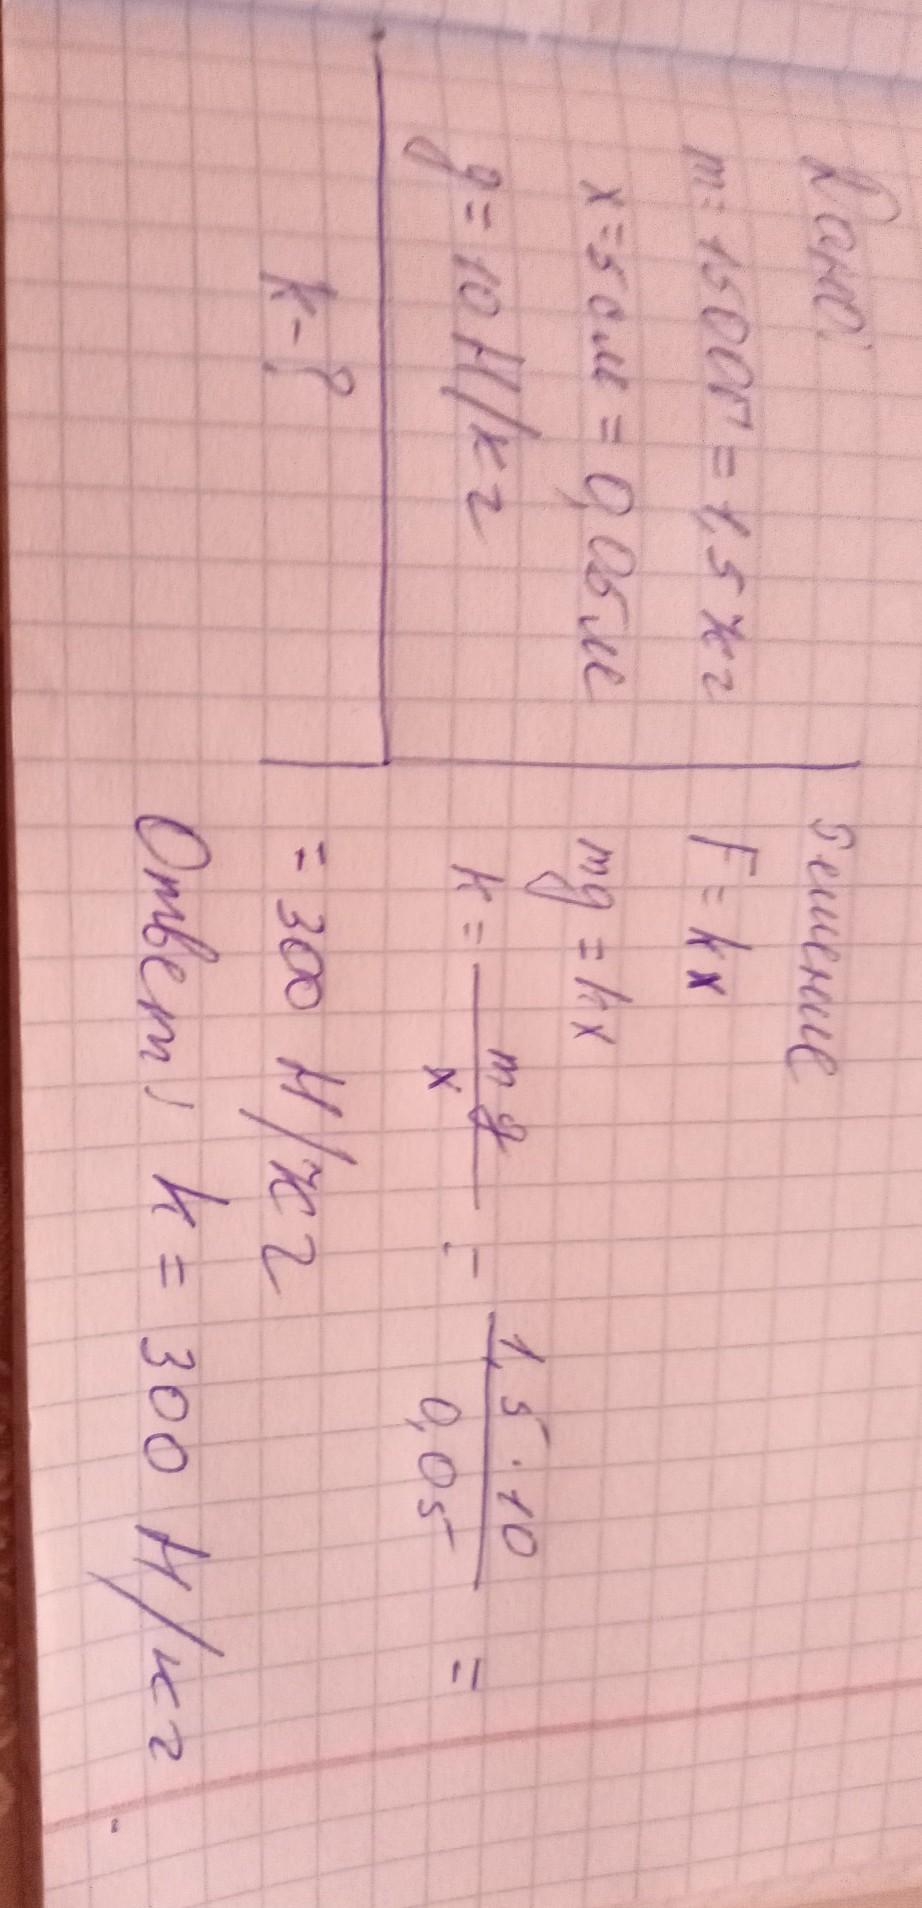 Дано:
m = 1500г = 1,5 кг
x = 5 см = 0,05 м
g = 10 Н/кг
k - ?
Решение
F = kx
mg = kx
k = mg/x = 1,5 · 10/0,05 =
= 300 Н/кг
Ответ: k = 300 Н/кг